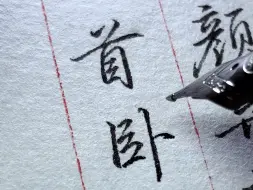 颜
首卧